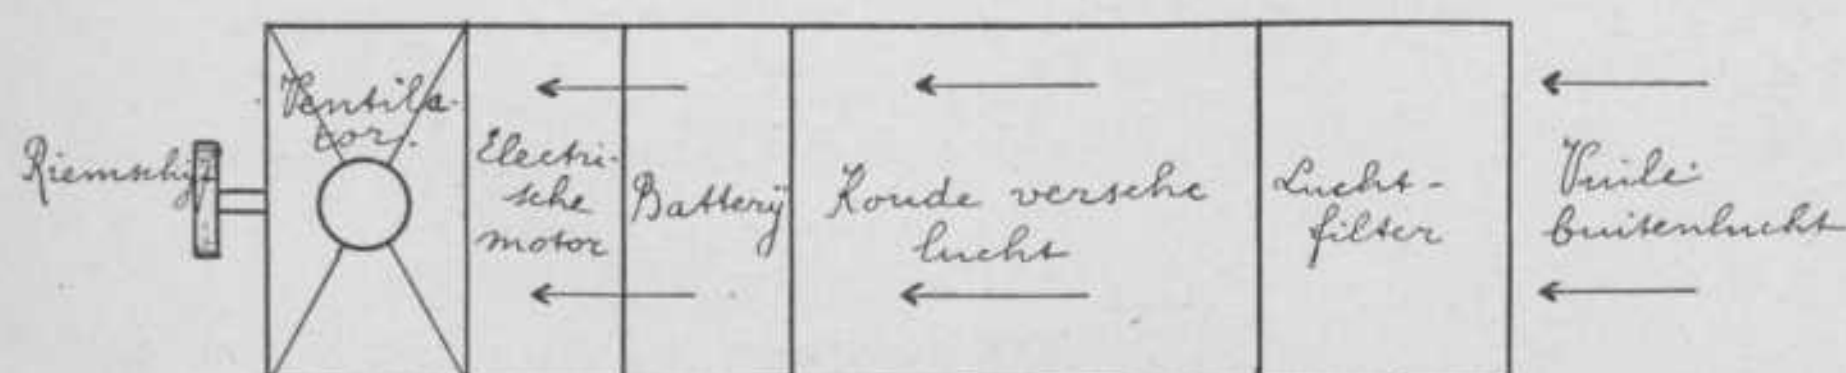 Riemschijf
Ventila-
tor.
Electri-
sche
motor
Battery
Koude versche
lucht
Lucht-
filter
Vuile
buitenlucht